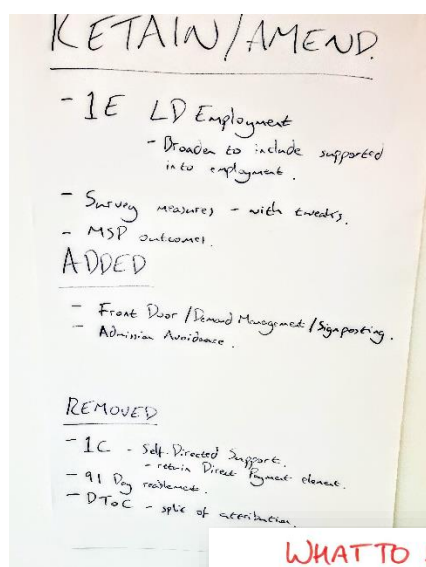 RETAIN/AMEND.
- 1E LD Employment
- Broaden to include supported
into employment.
- Survey measures - with tweaks.
- MSP outcomes.
ADDED
- Front Door/Demand Management/Signposting.
- Admission Avoidance.
REMOVED
- 1C - Self-Directed Support.
- retain Direct Payment element.
- 91 Day reablement.
- DToC - split of attribution.
WHAT TO